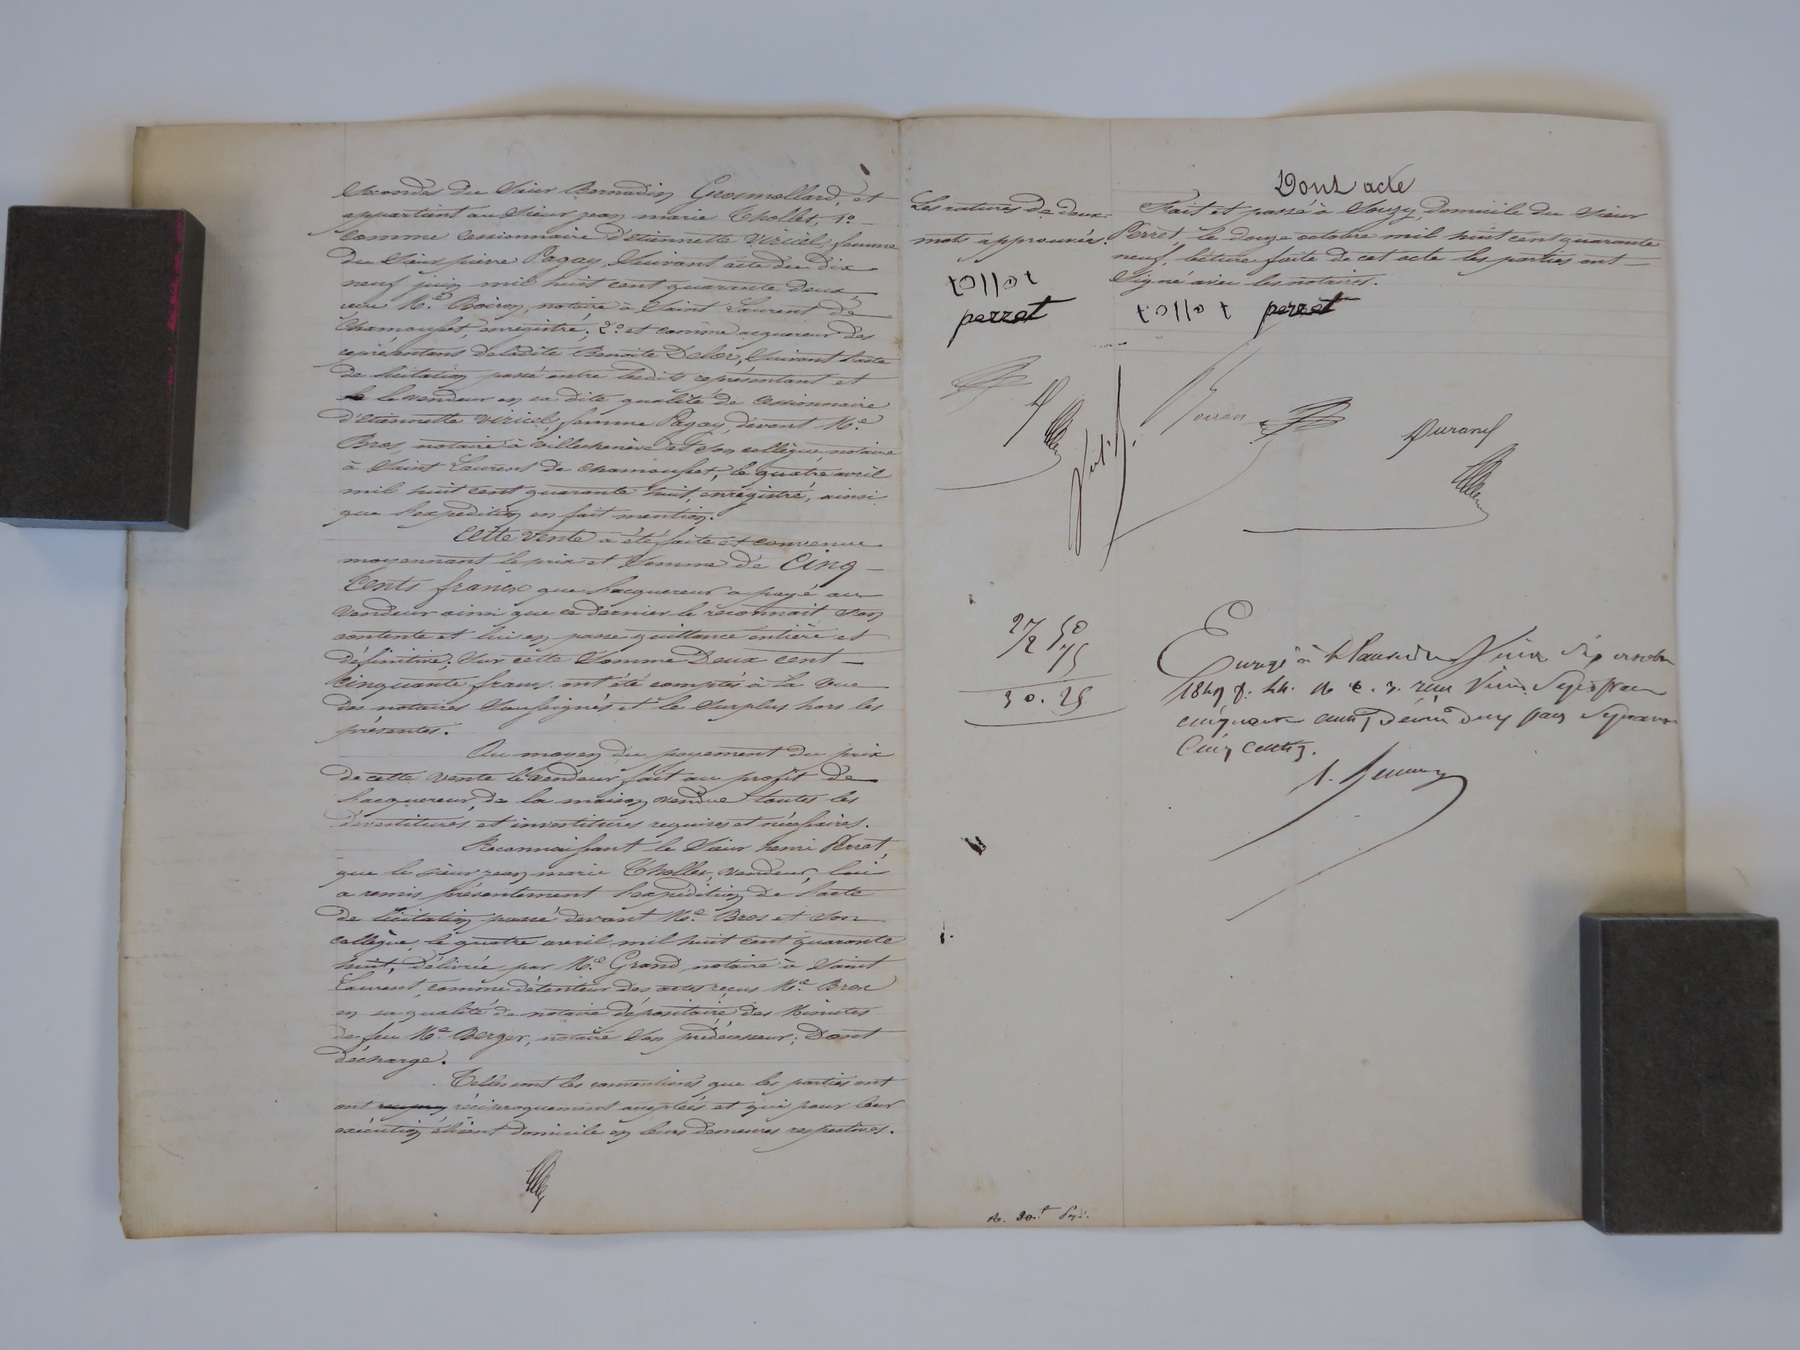 secondes du Sieur Bernadin Grosmollard, et
appartient au Sieur jean marie Thollet, 1o
comme cessionnaire d'etiennette Viricel, femme
du Sieur pierre Pagay, Suivant acte du dix
neuf juin mil huit cent quarante deux
reçu Me Boiron, notaire à Saint Laurent de
Chamousset, enregistré; 2o et comme acquereur des
représentans de ladite Benoite Delor, Suivant l'acte
de licitation passé entre lesdits représentant et
le vendeur en sa dite qualité de cessionnaire
d'etiennette Viricel, femme Pagay, devant Me
Bros, notaire à villechenève et Son collègue notaire
à Saint Laurent de chamousset, le quatre avril
mil huit cent quarante huit, enregistré, ainsi
que l'expédition en fait mention.
Cette vente a été faite et convenue
moyennant le prix et Somme de Cinq
Cents francs que l'acquereur a payé au
vendeur ainsi que ce dernier le reconnait s'en
contente et lui en passe quittance entière et
définitive. Sur cette Somme Deux cent
cinquante francs ont été comptés à la vue
des notaires Soussignés et le Surplus hors les
présentes.
Au moyen du payement du prix
de cette vente le vendeur fait au profit de
l'acquereur de la maison vendue toutes les
devestitures et investitures requises et nécessaires.
Reconnaissant le Sieur henri Perret,
que le Sieur jean marie Thollet, vendeur, lui
a remis présentement l'expédition de l'acte
de licitation passé devant Me Bros et Son
collègue le quatre avril mil huit cent quarante
huit, délivrée par Me Grand notaire à Saint
Laurent, comme détenteur des actes reçus Me Bros
en sa qualité de notaire dépositaire des Minutes
de feu Me Berger, notaire Son prédécesseur; Dont
décharge.
Telles sont les conventions que les parties ont
ont réciproquement acceptées et qui pour leur
exécution élisent domicile en leurs demeures respectives.
Les ratures de deux
mots approuvées.
tollet
perret
Dont acte
Fait et passé à Souzy, Domicile du Sieur
Perret, le douze octobre mil huit cent quarante
neuf, lecture faite de cet acte les parties ont
Signé avec les notaires.
tollet perret
Boiron
Durand
27 50
2 75
30.25